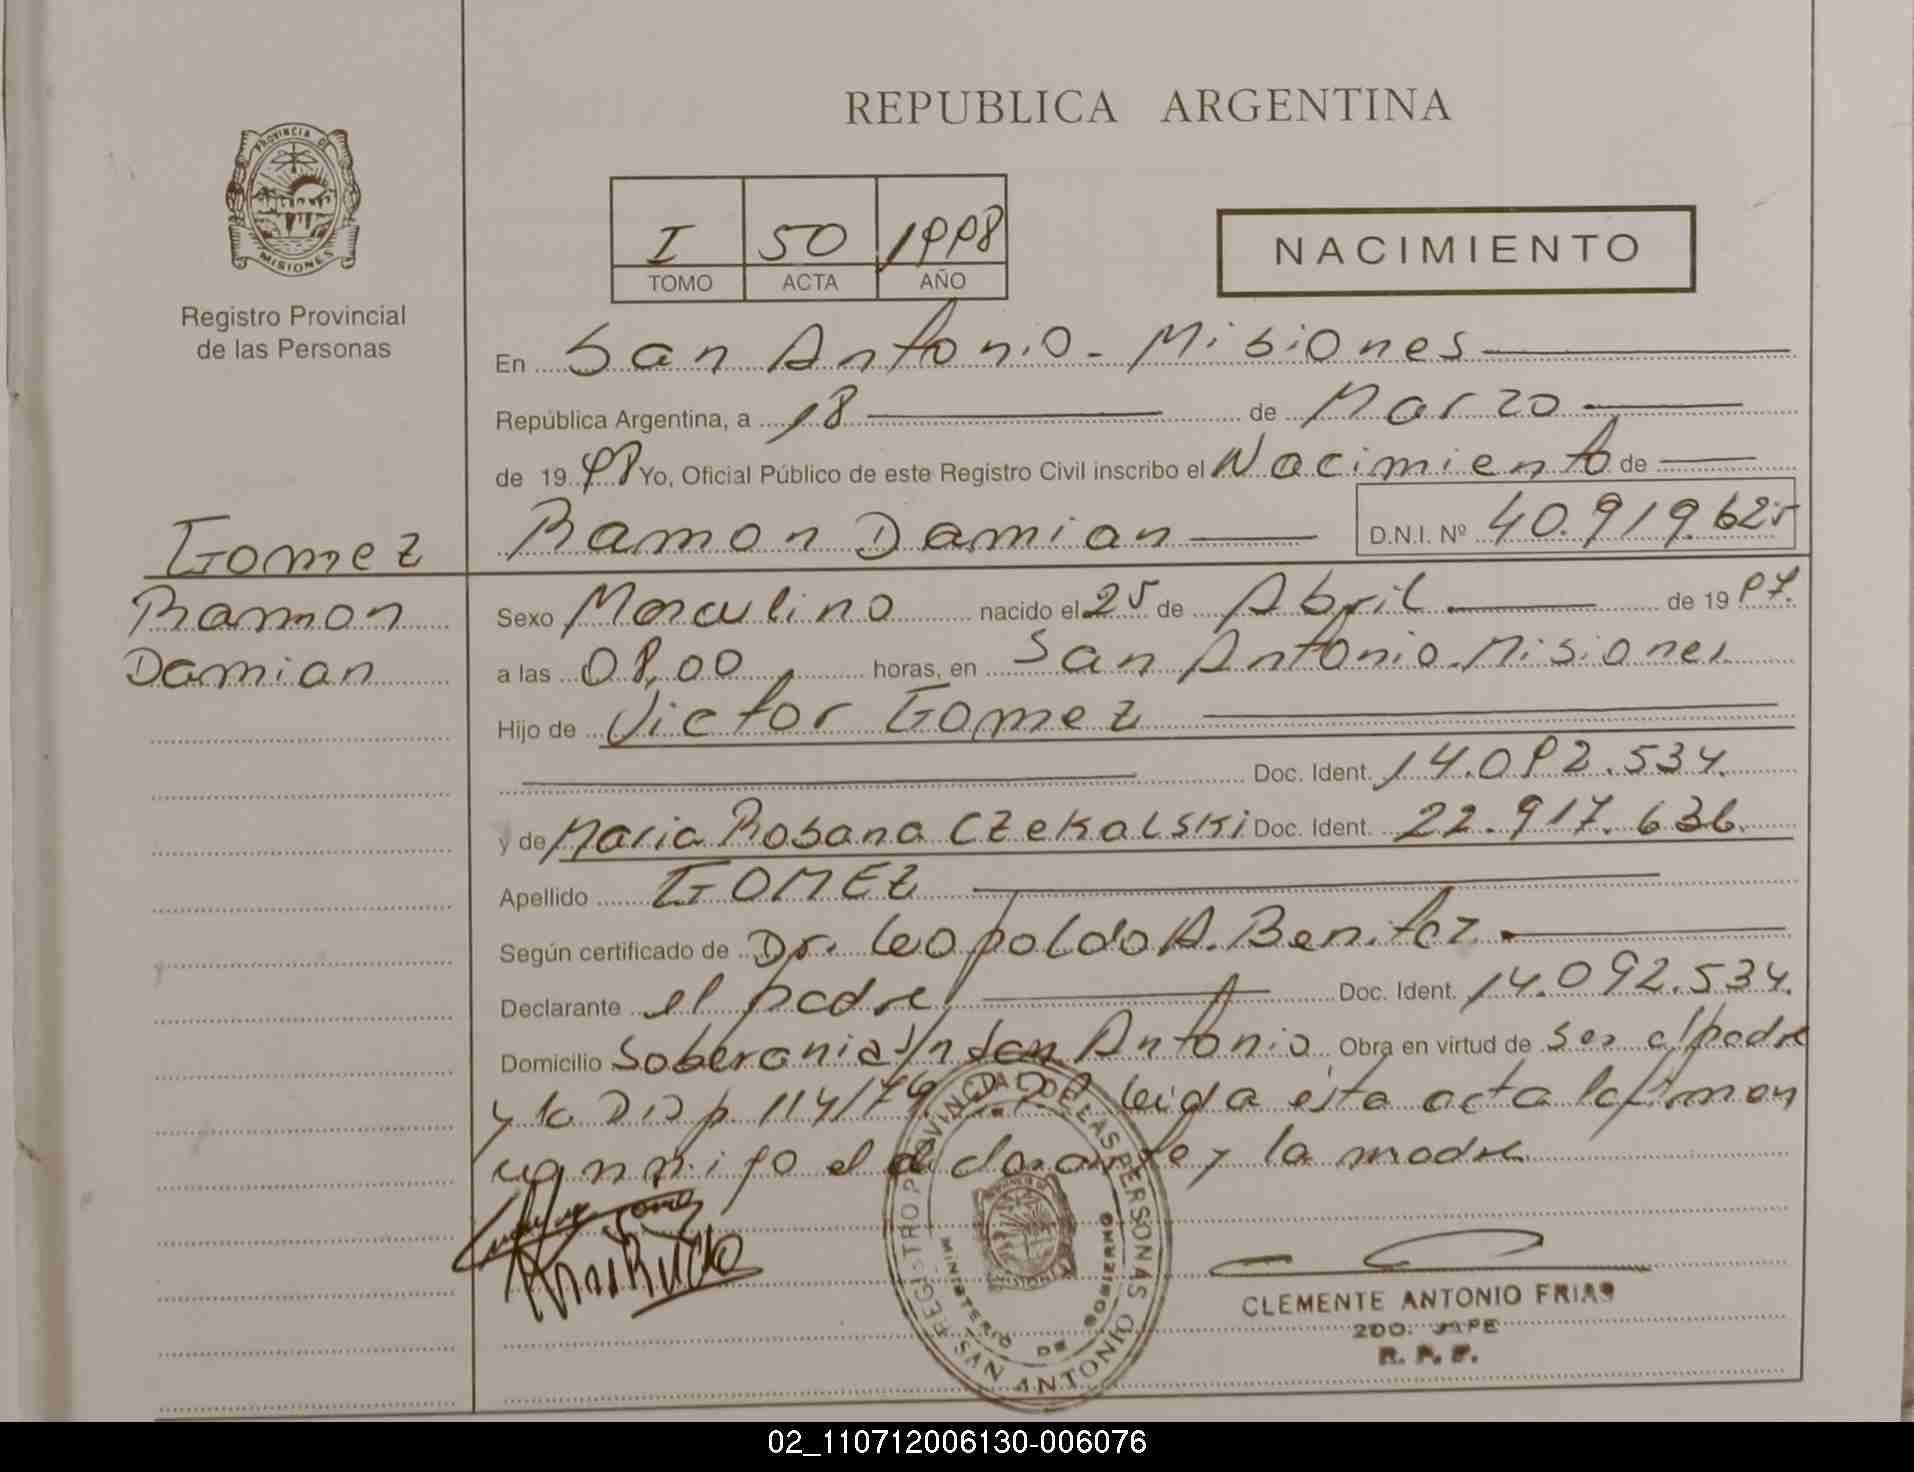 REPUBLICA ARGENTINA
PROVINCIA DE MISIONES
Registro Provincial
de las Personas
I 50 1998
TOMO ACTA AÑO
NACIMIENTO
En San Antonio - Misiones
República Argentina, a 18 de Marzo
de 1998 Yo, Oficial Público de este Registro Civil inscribo el Nacimiento de
Ramon Damian D.N.I. Nº 40.919.625
Gomez
Ramon
Damian
Sexo Masculino nacido el 25 de Abril de 1997.
a las 08,00 horas, en San Antonio. Misiones
Hijo de Victor Gomez
Doc. Ident. 14.092.534.
y de Maria Rosana CZEKALSKI Doc. Ident. 22.917.636.
Apellido GOMEZ
Según certificado de Dr. Leopoldo A. Benitez.
Declarante el padre Doc. Ident. 14.092.534.
Domicilio Soberania s/n San Antonio Obra en virtud de ser el padre
y la Disp. 114/79 Leida esta acta la firman
conmigo el declarante y la madre
REGISTRO PROVINCIAL DE LAS PERSONAS
MINISTERIO DE GOBIERNO
SAN ANTONIO
CLEMENTE ANTONIO FRIAS
2DO. JEFE
R. P. P.
02_110712006130-006076